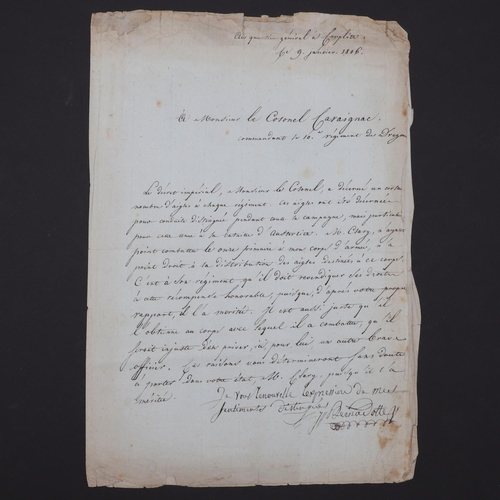 Au quartier général à
le 9 janvier 1806.
A Monsieur le Colonel Cavaignac,
commandant le 10.e régiment de Dragons
Le décret impérial, Monsieur le Colonel, a décerné un certain
nombre d'aigles à chaque régiment. ces aigles ont été décernés
pour conduite distinguée pendant toute la campagne, mais particulièrement
pour celle tenue à la bataille d'Austerlitz. M. Clary, n'ayant
point combattu le onze frimaire à mon corps d'armée, n'a
point droit à la distribution des aigles destinés à ce corps.
C'est à votre régiment qu'il doit revendiquer ses droits
à cette récompense honorable, puisque, d'après votre propre
rapport, il l'a méritée. Il est aussi juste qu'il
l'obtienne au corps avec lequel il a combattu, qu'il
serait injuste d'en priver ici, pour lui, un autre brave
officier. Ces raisons vous détermineront sans doute
à porter dans votre état, M. Clary, puisqu'il l'a
méritée.
Je vous renouvelle l'expression de mes
sentiments distingués
Bernadotte